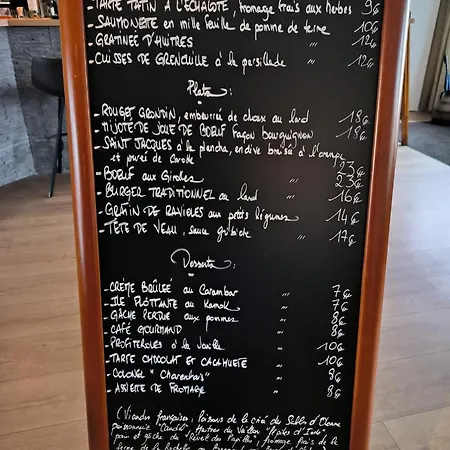 TARTE TATIN A L'ECHALOTE, fromage frais aux herbes 9€
- SAUMONETTE en mille feuille de pomme de terre 10€
- GRATINEE D'HUITRES " 12€
- CUISSES DE GRENOUILLE à la persillade " 12€
Plats :
- ROUGET GRONDIN, embeurrée de choux au lard 18€
- MIJOTE DE JOUE DE BOEUF façon bourguignon 18€
- SAINT JACQUES à la plancha, endive braisée à l'orange
et purée de carotte 23€
- BOEUF aux Girolles " 23€
- BURGER TRADITIONNEL au lard " 16€
- GRATIN DE RAVIOLES aux petits légumes 14€
- TÊTE DE VEAU, sauce gribiche " 17€
Desserts :
- CRÈME BRÛLÉE au Carambar " 7€
- ILE FLOTTANTE au Kamok " 7€
- GÂCHE PERDUE aux pommes " 8€
- CAFÉ GOURMAND " 8€
- PROFITEROLES à la Vanille " 10€
- TARTE CHOCOLAT ET CACAHUETE " 10€
- COLONEL "Charentais" " 8€
- ASSIETTE DE FROMAGE " 8€
(Viandes françaises, Poissons de la criée des Sables d'Olonne
poissonnerie Huitres du
pain et gâche du "Réveil des Papilles", fromage frais de la
ferme de la